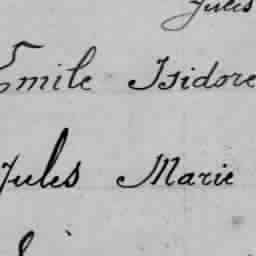 Jules
Emile Isidore
Jules Marie